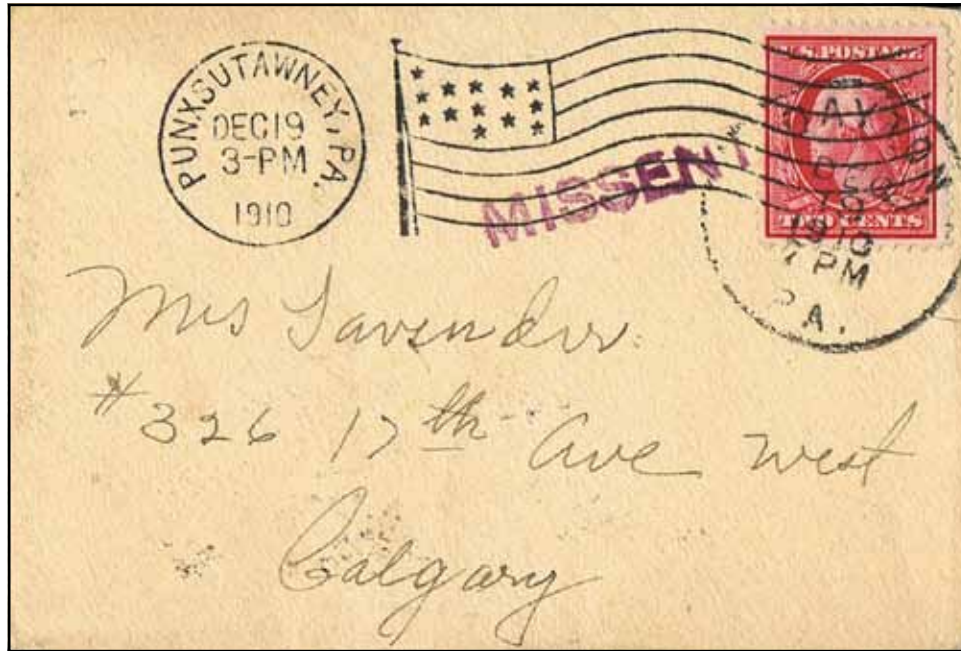 PUNXSUTAWNEY, PA.
DEC 19
3-PM
1910
MISSENT
U.S. POSTAGE
TWO CENTS
DEC
19
1910
7 PM
PA.
Mrs Lavender
#326 17th Ave West
Calgary